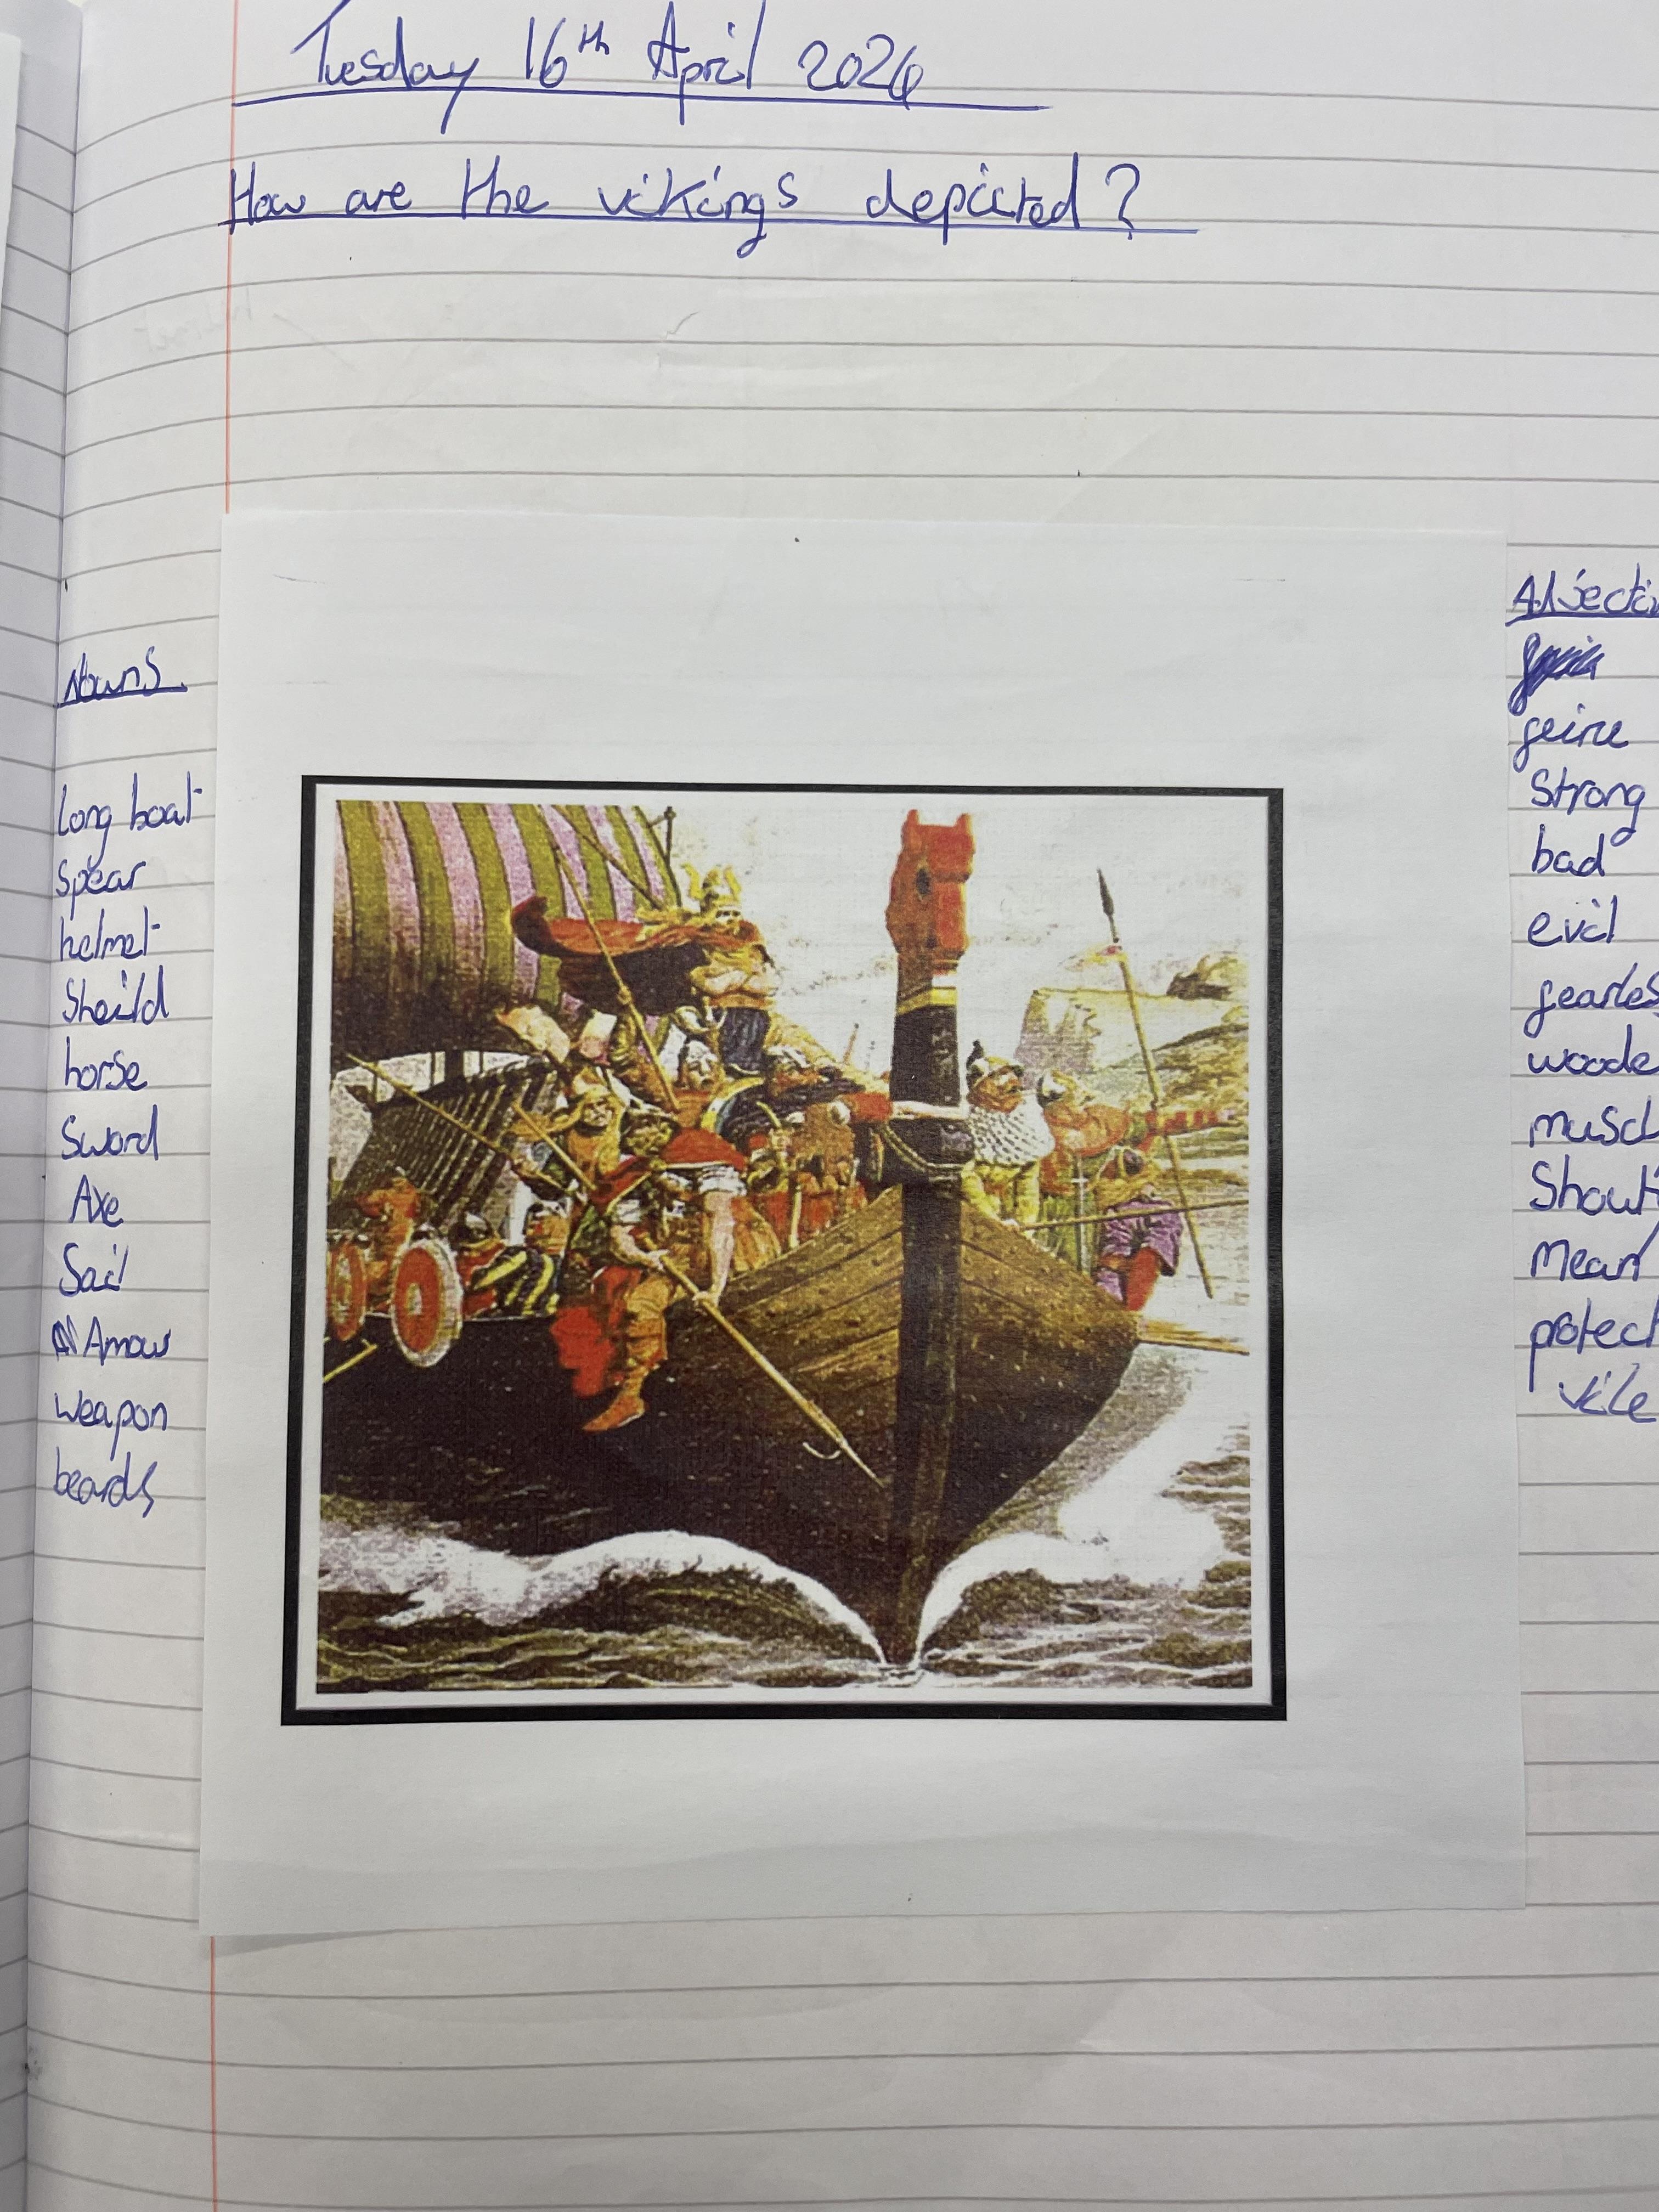 Tuesday 16th April 2024
How are the vikings depicted?
Nouns
long boat
spear
helmet
Sheild
horse
Sword
Axe
Sail
Amour
weapon
beards
Adjectiv
feirce
Strong
bad
evil
fearles
woode
muscl
Shouti
Mean
protect
vile